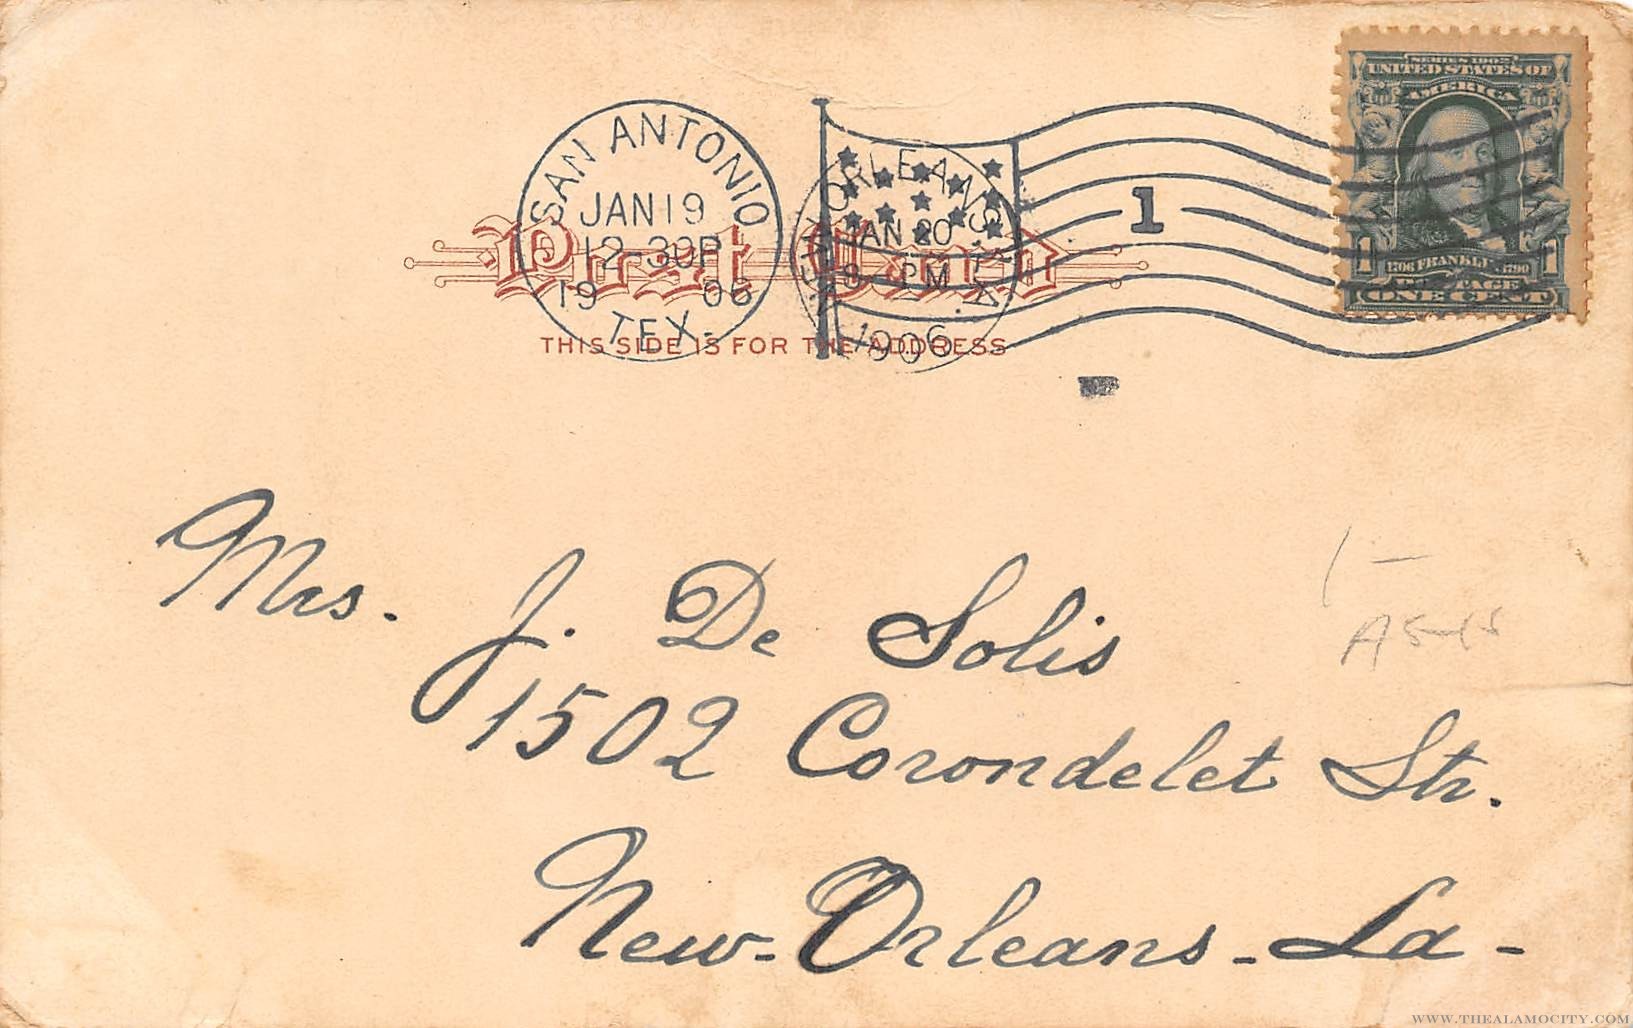 SERIES 1902
UNITED STATES OF
AMERICA
1706 FRANKLIN 1790
1 POSTAGE 1
ONE CENT
SAN ANTONIO
JAN 19
12-30P
19 06
TEX.
1
ORLEANS
JAN 20
PM
1906
Post Card
THIS SIDE IS FOR THE ADDRESS
Mrs. J. De Solis
1502 Corondelet Str.
New-Orleans-La-
1-
WWW.THEALAMOCITY.COM